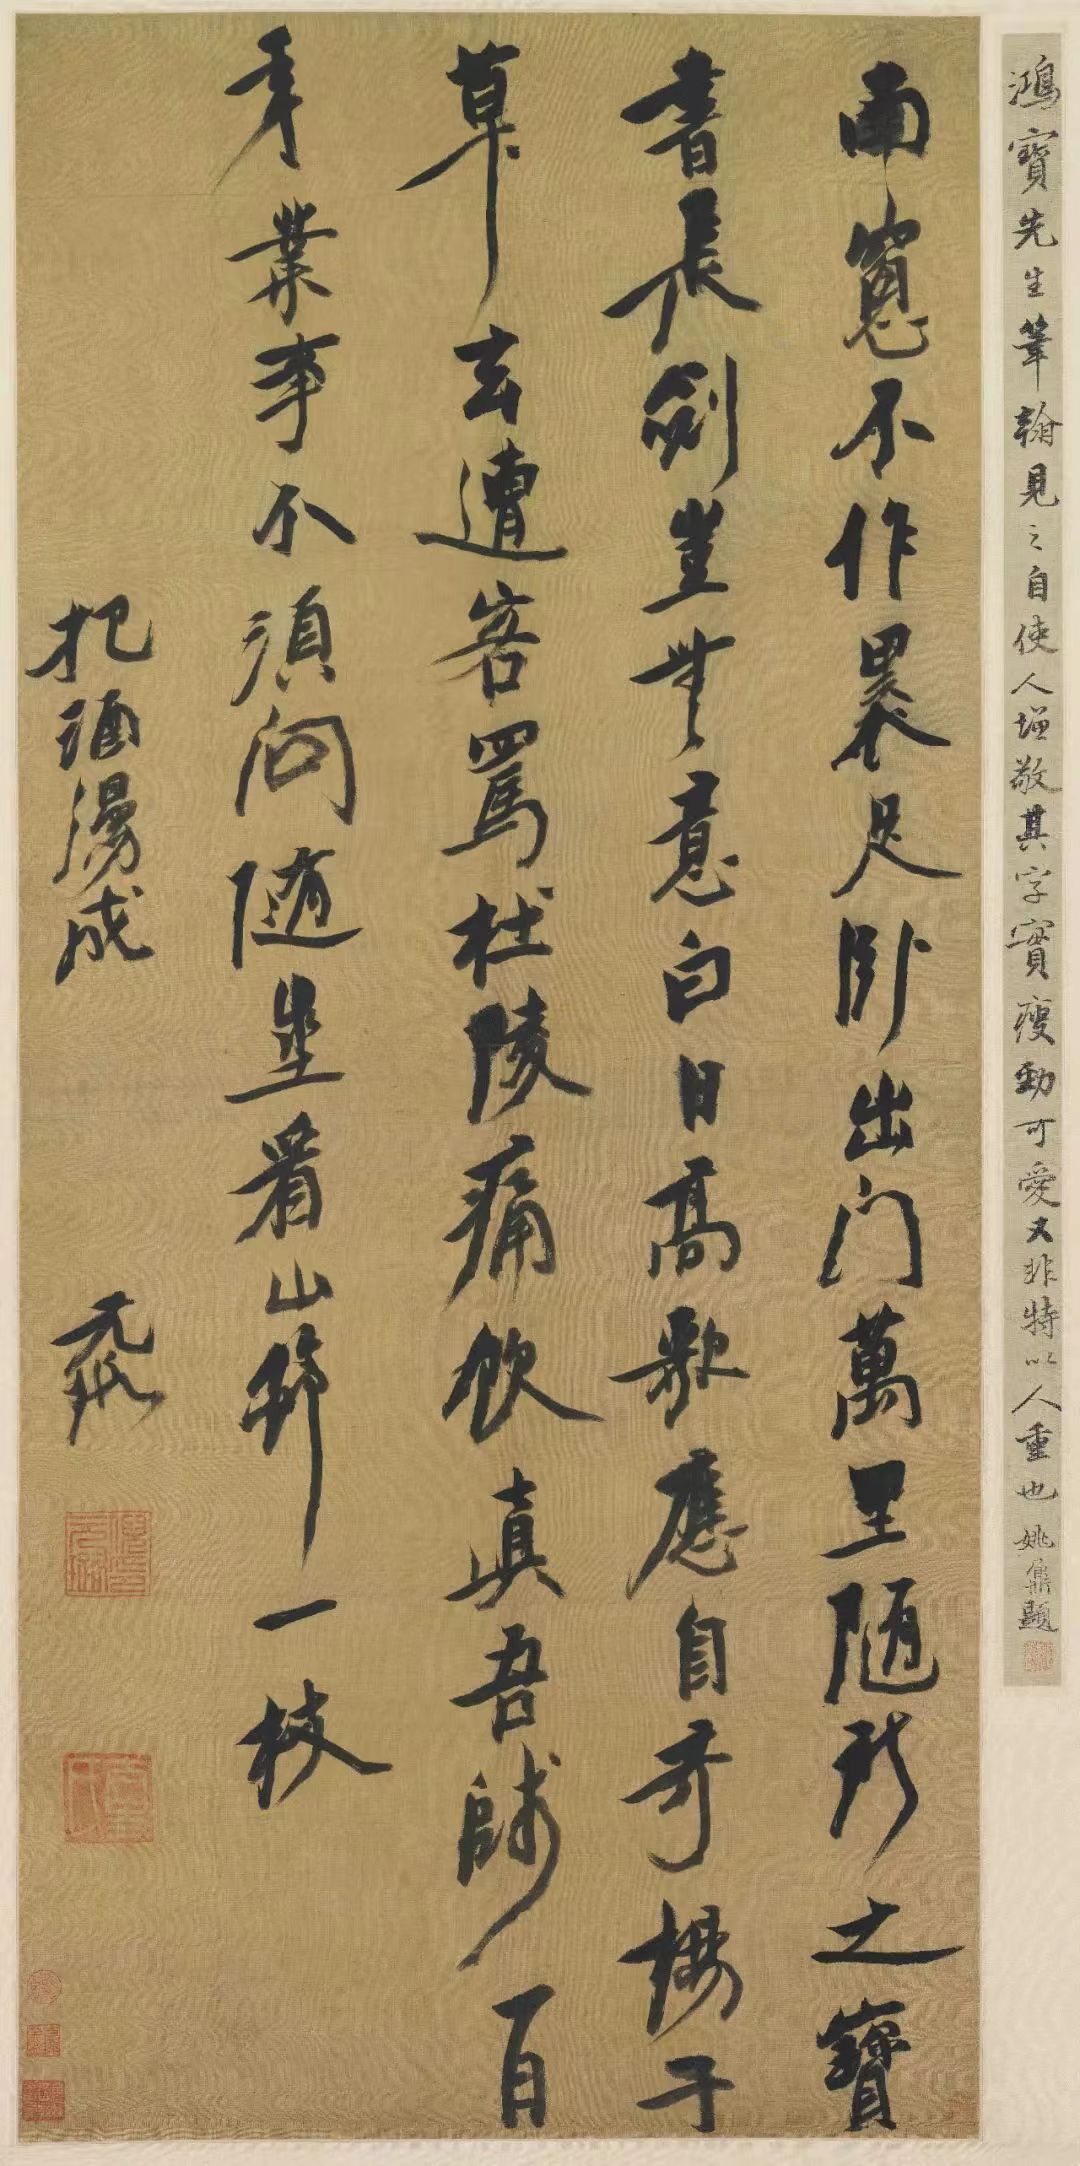 鴻寶先生筆翰見之自使人增敬其字實瘦勁可愛又非特以人重也 姚鼐題
南窻不作累足卧出門萬里隨所之寶
書長劍豈無意白日高歌應自奇楊子
草玄遭客罵杜陵痛飲真吾師百
年業事不須問隨坐看山筇一枝
把酒漫成 元璐